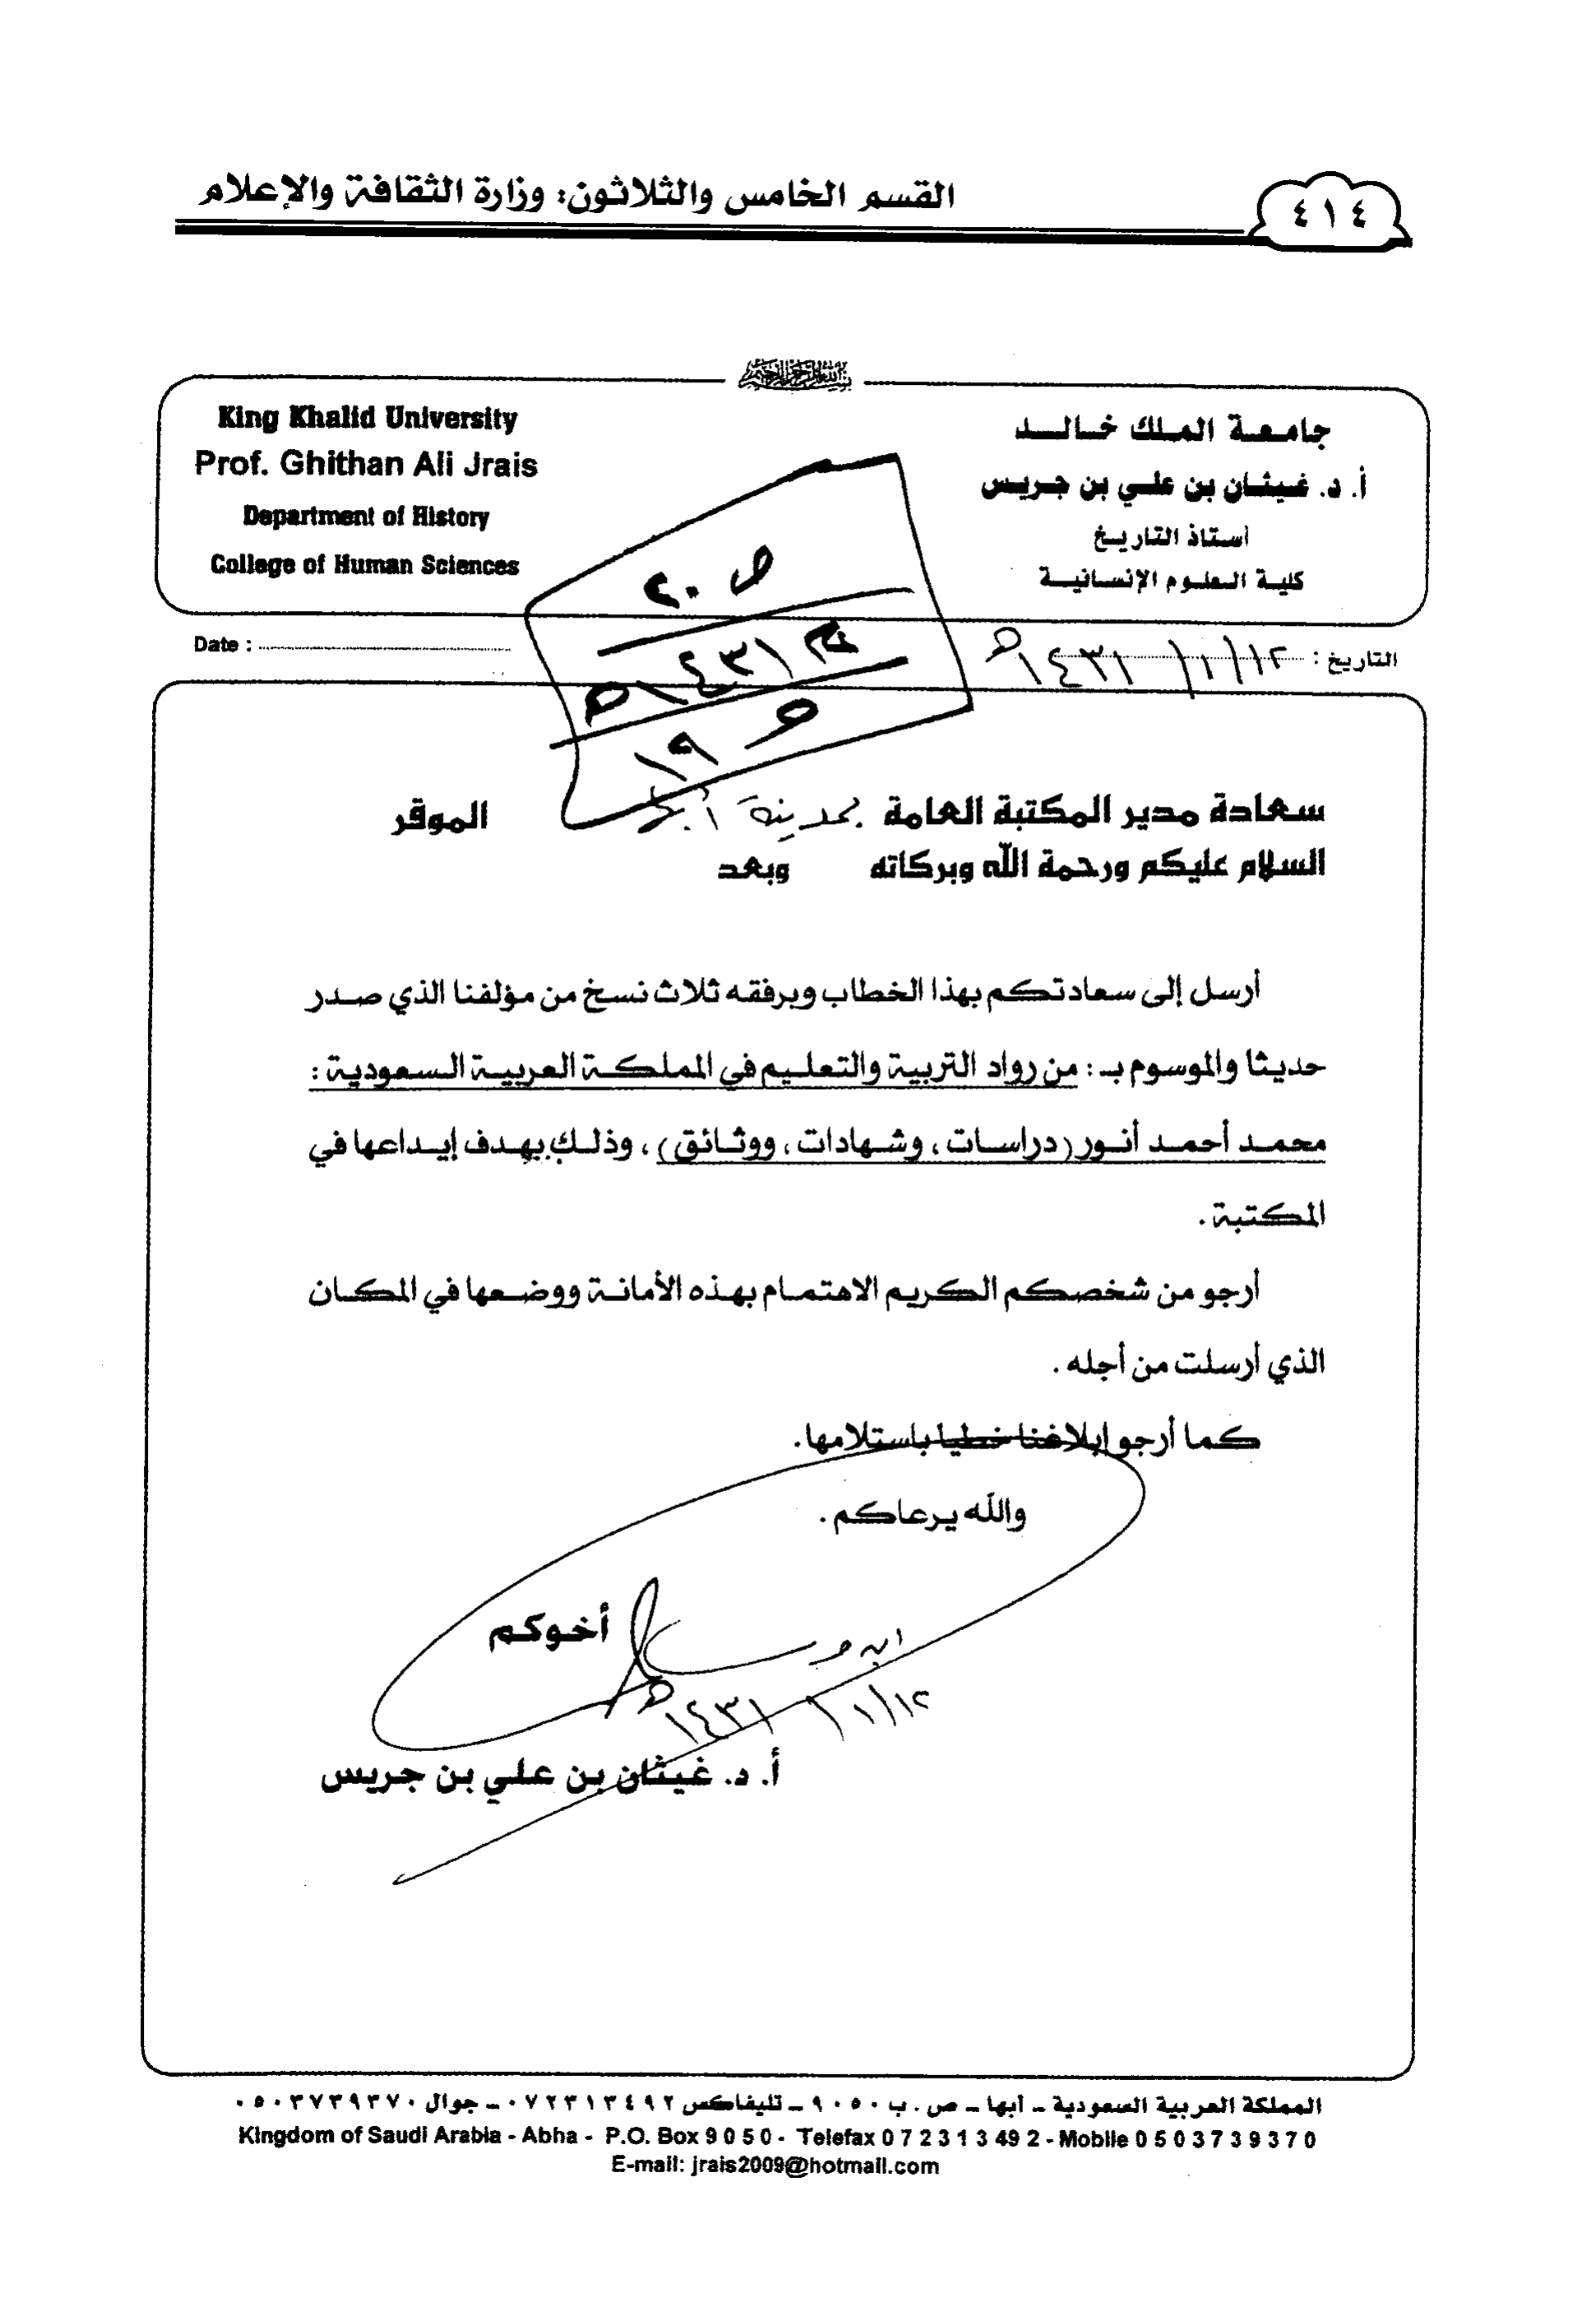 ٤١٤
القسم الخامس والثلاثون: وزارة الثقافة والإعلام
بسم الله الرحمن الرحيم
جامعة الملك خالد
أ. د. غيثان بن علي بن جريس
أستاذ التاريخ
كلية العلوم الإنسانية
King Khalid University
Prof. Ghithan Ali Jrais
Department of History
College of Human Sciences
التاريخ : ١٢/١/١٤٣١هـ
Date :
ص ٢٠
١٤٣١هـ
١٩
سعادة مدير المكتبة العامة بمدينة أبها الموقر
السلام عليكم ورحمة الله وبركاته وبعد
أرسل إلى سعادتكم بهذا الخطاب وبرفقه ثلاث نسخ من مؤلفنا الذي صدر
حديثا والموسوم بـ : من رواد التربية والتعليم في المملكة العربية السعودية :
محمد أحمد أنور (دراسات ، وشهادات ، ووثائق) ، وذلك بهدف إيداعها في
المكتبة .
أرجو من شخصكم الكريم الاهتمام بهذه الأمانة ووضعها في المكان
الذي أرسلت من أجله .
كما أرجو إبلاغنا خطيا باستلامها.
والله يرعاكم .
أخوكم
١٢/١/١٤٣١هـ
أ. د. غيثان بن علي بن جريس
المملكة العربية السعودية ـ أبها ـ ص . ب ٩٠٥٠ ـ تليفاكس ٠٧٢٣١٣٤٩٢ ـ جوال ٠٥٠٣٧٣٩٣٧٠
Kingdom of Saudi Arabia - Abha - P.O. Box 9 0 5 0 - Telefax 0 7 2 3 1 3 49 2 - Mobile 0 5 0 3 7 3 9 3 7 0
E-mail: jrais2009@hotmail.com